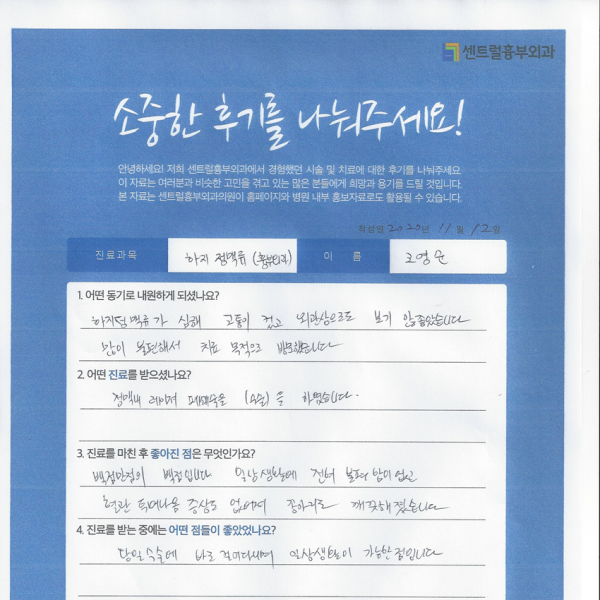 센트럴흉부외과
소중한 후기를 나눠주세요!
안녕하세요! 저희 센트럴흉부외과에서 경험했던 시술 및 치료에 대한 후기를 나눠주세요
이 자료는 여러분과 비슷한 고민을 겪고 있는 많은 분들에게 희망과 용기를 드릴 것입니다.
본 자료는 센트럴흉부외과의원이 홈페이지와 병원 내부 홍보자료로도 활용될 수 있습니다.
작성일 2020년 11월 12일
진료과목 하지 정맥류 (흉부외과) 이 름 조영순
1. 어떤 동기로 내원하게 되셨나요?
하지정맥류가 심해 고통이 컸고 외관상으로도 보기 안좋았습니다
많이 불편해서 치료 목적으로 방문했습니다
2. 어떤 진료를 받으셨나요?
정맥내 레이저 폐쇄술을 (수술)을 하였습니다.
3. 진료를 마친 후 좋아진 점은 무엇인가요?
백점만점의 백점입니다 일상생활에 전혀 불편함이 없고
혈관 튀어나옴 증상도 없어져 종아리도 깨끗해졌습니다
4. 진료를 받는 중에는 어떤 점들이 좋았었나요?
당일수술에 바로 걸어다니며 일상생활이 가능한점입니다